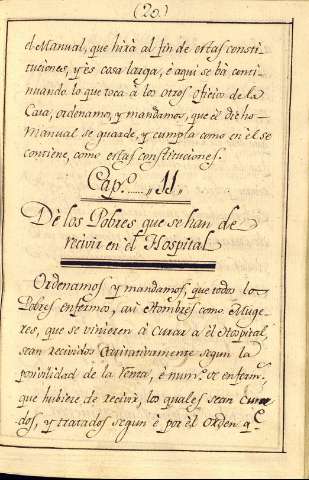 (20)
el Manual, que hirà al fin de estas consti-
tuciones, y es cosa larga, è aqui se bà conti-
nuando lo que toca à los otros oficios de la
Casa, ordenamos, y mandamos, que el dicho
Manual se guarde, y cumpla como en èl se
contiene, como estas constituciones.
Cap.º ...... ,, 11 ,,
Dè los Pobres que se han de
recivir en el Hospital
Ordenamos y mandamos, que todos los
Pobres enfermos, asi Hombres como Muge-
res, que se vinieren à Curar a èl Hospital
sean recividos Caritativamente segun la
posivilidad de la renta, è num.º de enferm.s
que hubiere de recivir, los quales sean Cura-
dos, y tratados segun è por èl orden q.e